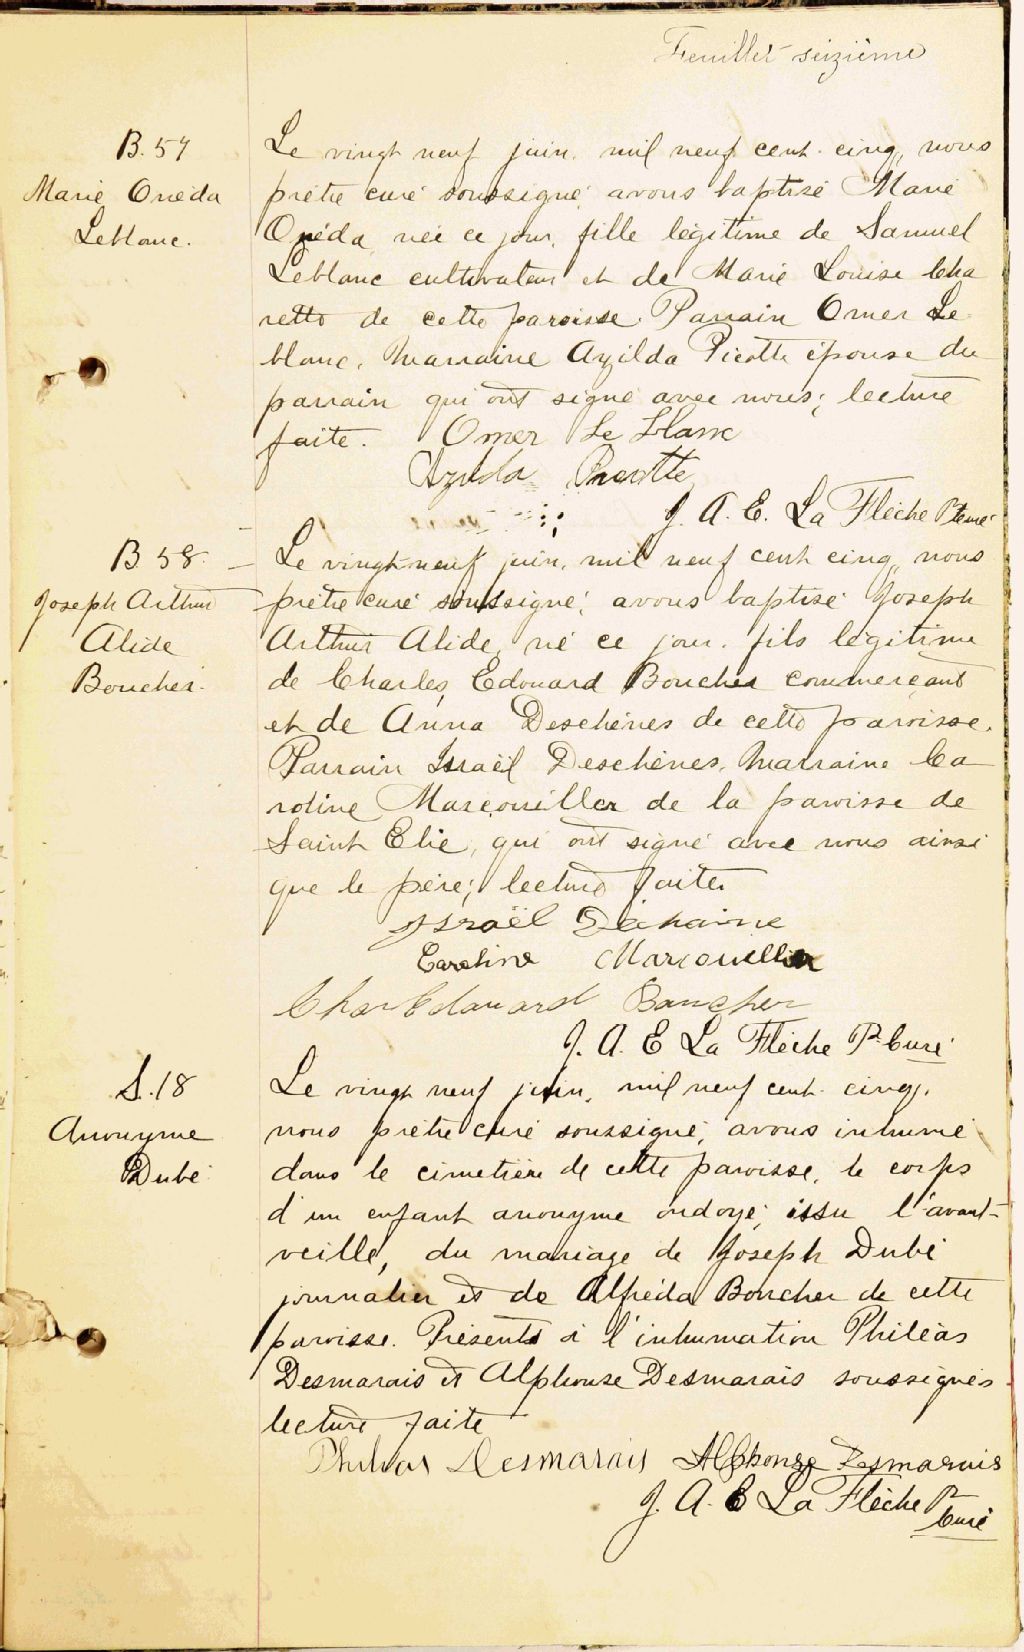 Feuillet seizième
B. 57
Marie Onéda
Leblanc.
Le vingt neuf juin, mil neuf cent cinq, nous
prêtre curé soussigné, avons baptisé Marie
Onéda, née ce jour, fille légitime de Samuel
Leblanc cultivateur et de Marie Louise Cha
rette de cette paroisse. Parrain Omer Le
blanc, Marraine Azilda Picotte épouse du
parrain qui ont signé avec nous; lecture
faite. Omer Le Blanc
Azilda Picotte
J. A. E. La Flèche Ptre curé
B 58.
Joseph Arthur
Alide
Boucher.
Le vingt neuf juin, mil neuf cent cinq, nous
prêtre curé soussigné, avons baptisé Joseph
Arthur Alide, né ce jour, fils légitime
de Charles Edouard Boucher commerçant
et de Anna Deschènes de cette paroisse.
Parrain Israël Deschènes, Marraine Ca
roline Marcouiller de la paroisse de
Saint Elie, qui ont signé avec nous ainsi
que le père; lecture faite.
Israël Dechaine
Caroline Marcouiller
Char Edouard Boucher
J. A. E La Flèche Ptr Curé
S. 18
Anonyme
Dubé
Le vingt neuf juin, mil neuf cent cinq,
nous prêtre curé soussigné, avons inhumé
dans le cimetière de cette paroisse, le corps
d'un enfant anonyme ondoyé, issu l'avant-
veille, du mariage de Joseph Dubé
journalier et de Alfréda Boucher de cette
paroisse. Présents à l'inhumation Philéas
Desmarais et Alphonse Desmarais soussignés
lecture faite
Phileas Desmarais Alphonse Desmarais
J. A. E La Flèche Ptr
Curé